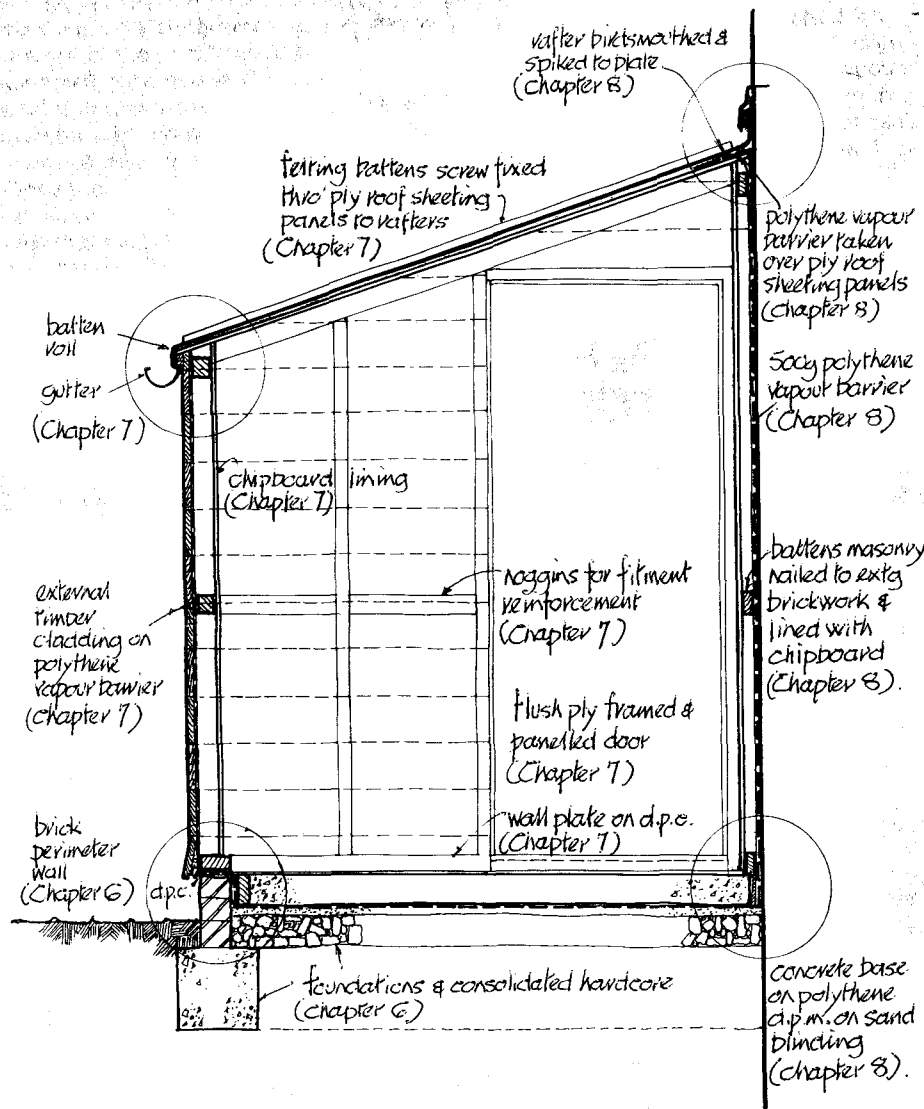 rafter birdsmouthed &
spiked to plate
(Chapter 8)
felting battens screw fixed
thro' ply roof sheeting
panels to rafters
(Chapter 7)
polythene vapour
barrier taken
over ply roof
sheeting panels
(Chapter 8)
batten
roll
gutter
(Chapter 7)
500g polythene
vapour barrier
(Chapter 8)
chipboard lining
(Chapter 7)
noggins for fitment
reinforcement
(Chapter 7)
battens masonry
nailed to extg
brickwork &
lined with
chipboard
(Chapter 8).
external
timber
cladding on
polythene
vapour barrier
(Chapter 7)
flush ply framed &
panelled door
(Chapter 7)
wall plate on d.p.c.
(Chapter 7)
brick
perimeter
wall
(Chapter 6)
d.p.c.
foundations & consolidated hardcore
(Chapter 6)
concrete base
on polythene
d.p.m. on sand
blinding
(Chapter 8).